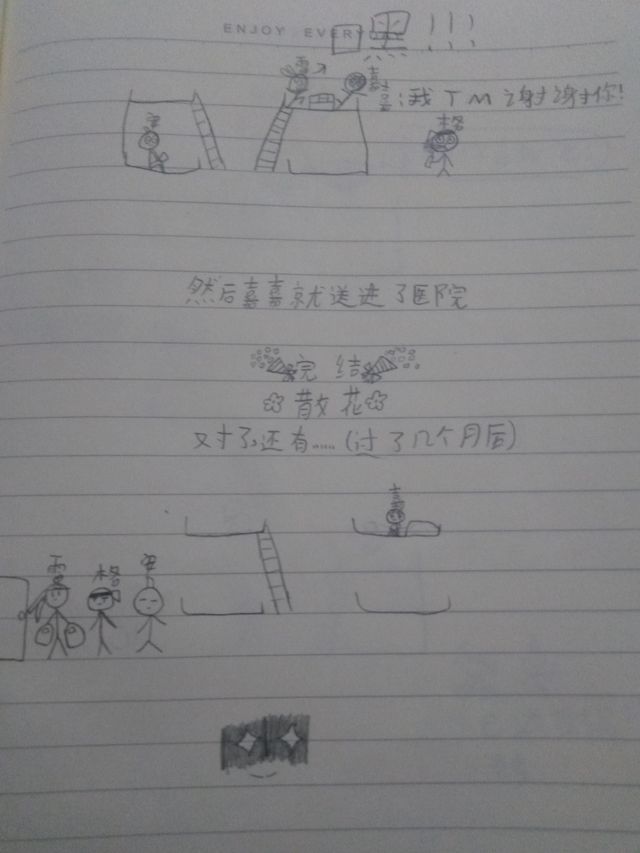 ENJOY EVERY
!!!
雷
嘉:我TM谢谢你!
安
格
然后嘉嘉就送进了医院
完结
散花
对了,还有……(过了几个月后)
嘉
雷 格 安